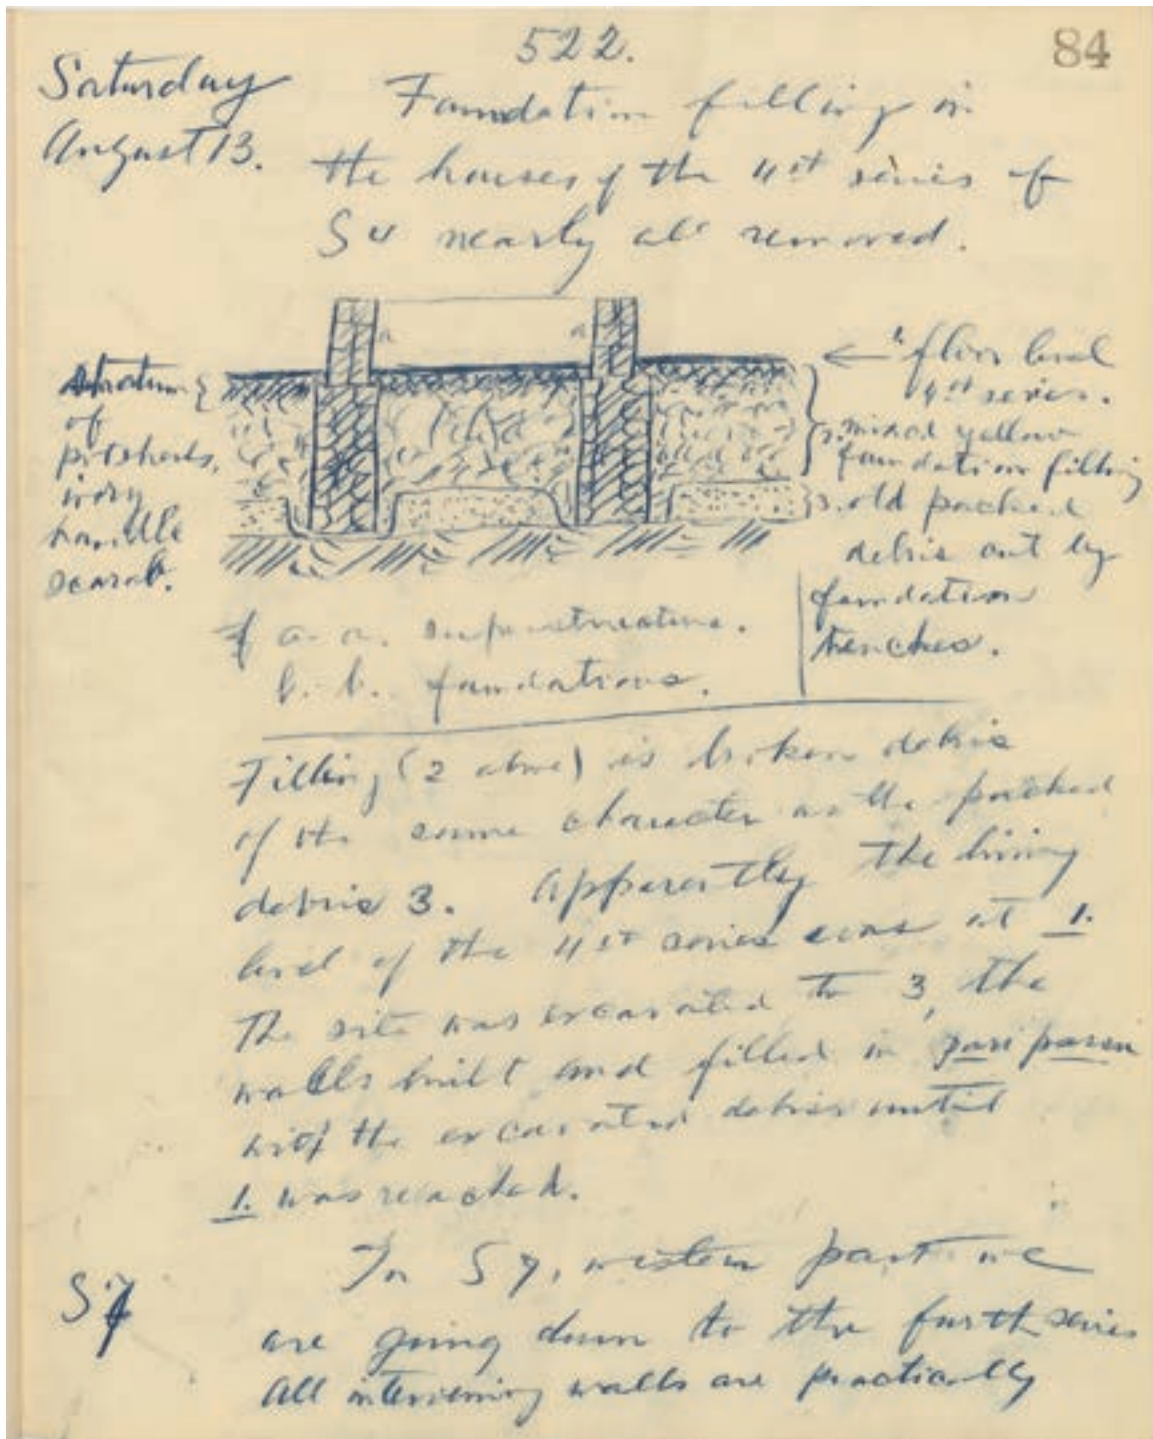 522.
84
Saturday
August 13.
Foundation filling in
the houses of the 4st series of
S4 nearly all removed.
stratum
of
potsherds,
ivory
handle
scarab.
a
a
1. floor level
4st series.
2. mixed yellow
foundation filling
3. old packed
debris cut by
foundation
trenches.
a. a. superstructure.
b. b. foundations.
Filling (2 above) is broken debris
of the same character as the packed
debris 3. Apparently the living
level of the 4st series was at 1.
The site was excavated to 3, the
walls built and filled in pari passu
with the excavated debris until
1. was reached.
S7
In S7, western part we
are going down to the fourth series
All intervening walls are practically